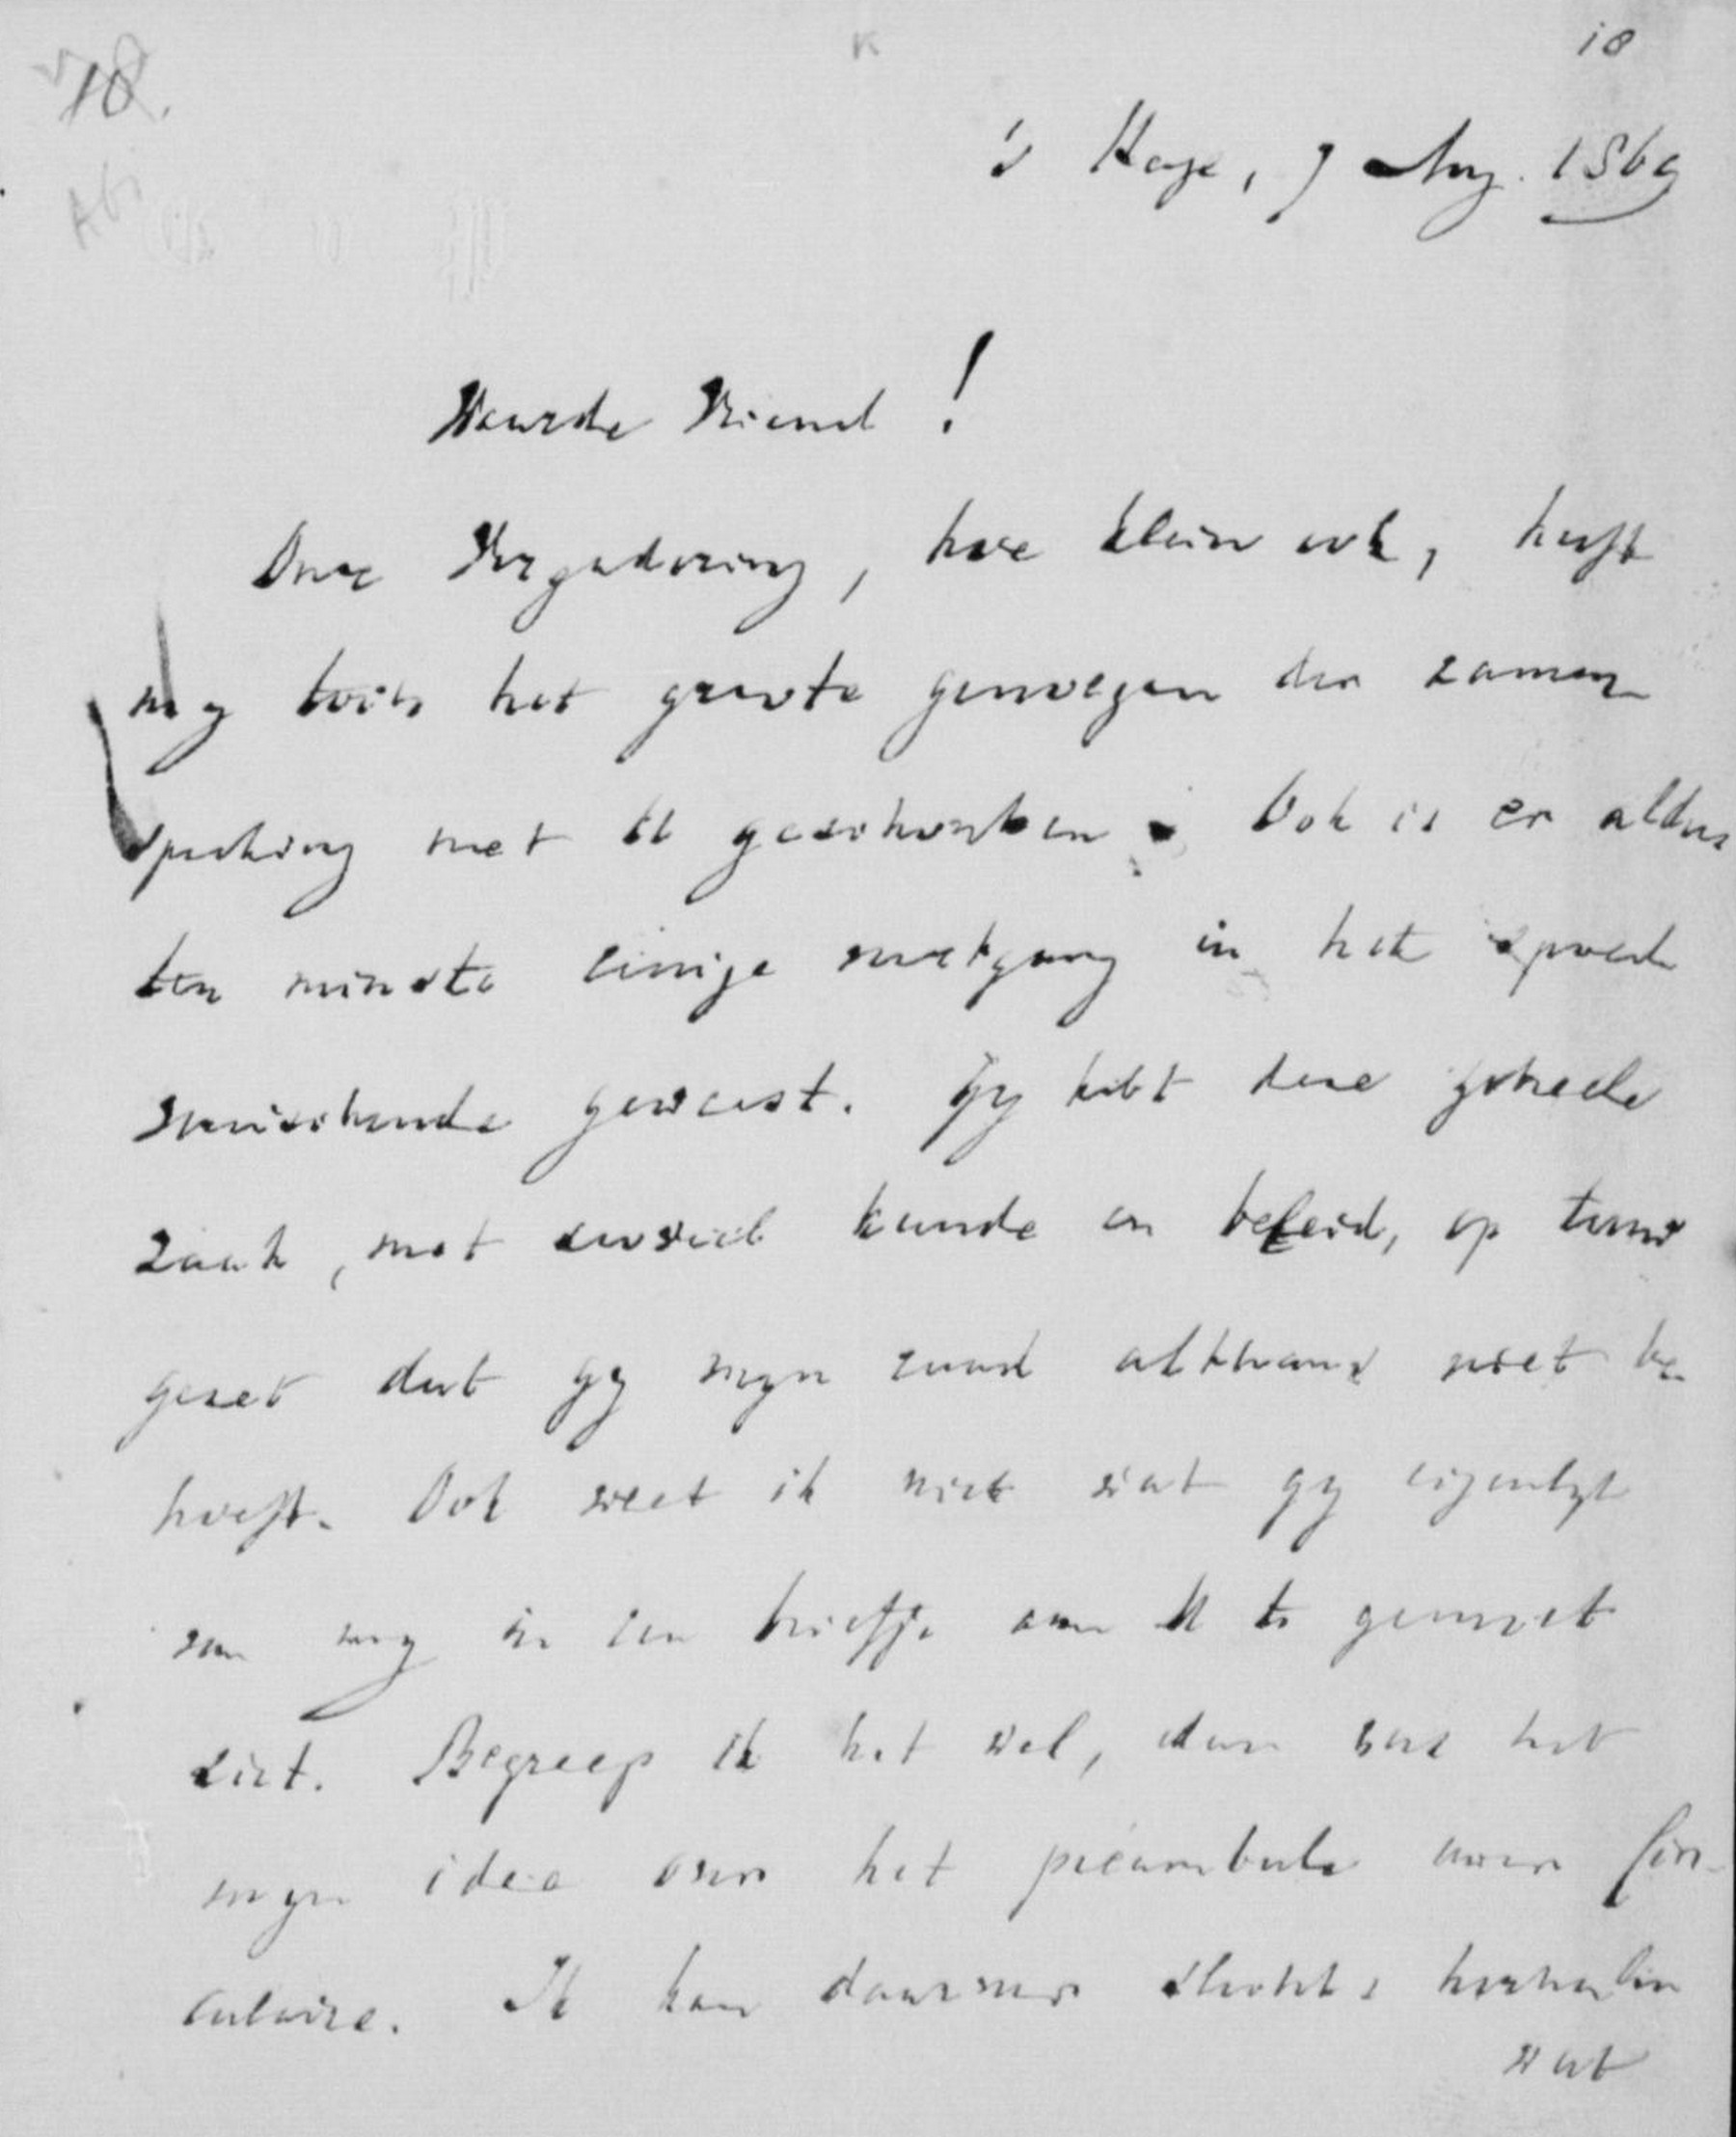 18.
K
18
's Hage, 9 Aug. 1869
Waarde Vriend!
Onze Vergadering, hoe klein ook, heeft
my toch het groote genoegen der zamen
spreking met U geschonken. Ook is er aldus
ten minste eenige voortgang in het spoed
vereischende geweest. Gy hebt deze geheele
zaak, met zooveel kunde en beleid, op touw
gezet dat gy myn raad althans niet be-
hoeft. Ook weet ik niet wat gy eigenlyk
van my in een briefje aan U te gemoet
ziet. Begreep ik het wel, dan was het
myn idee over het préambule uwer Cir-
culaire. Ik kan daarover slechts herhalen
wat